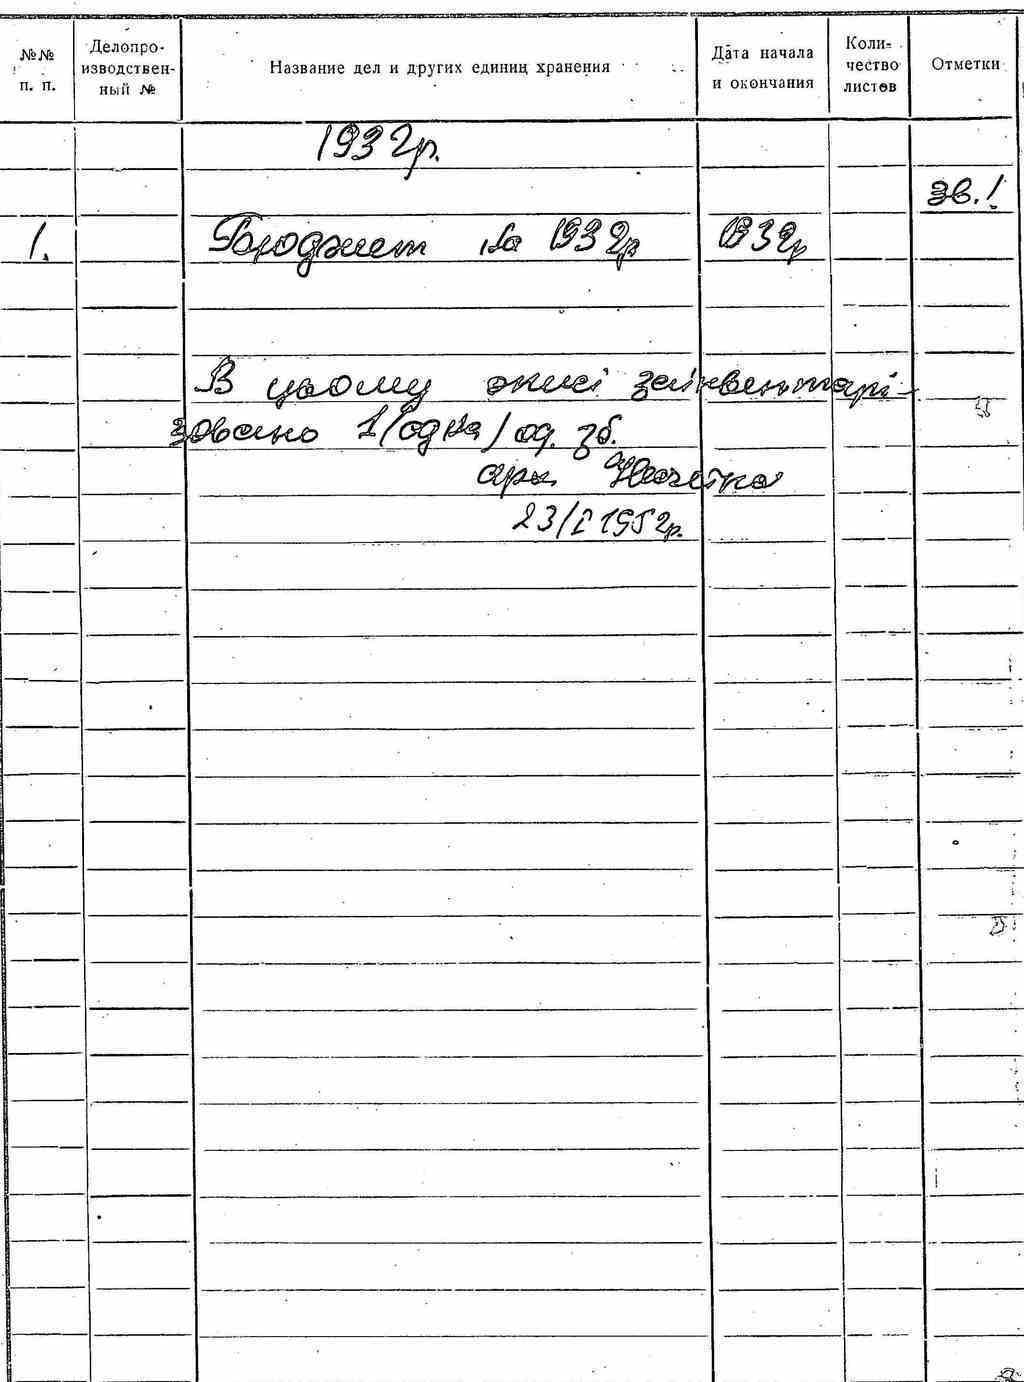 №№ п. п.
Делопро-
изводствен-
ный №
Название дел и других единиц хранения
Дата начала
и окончания
Коли-
чество
листов
Отметки
1932р.
зв.!
1. Бюджет на 1932р 1932р
В цьому описі заінвентарі-
зовано 1 (одна) од. зб.
арх.
23/I 1952р.